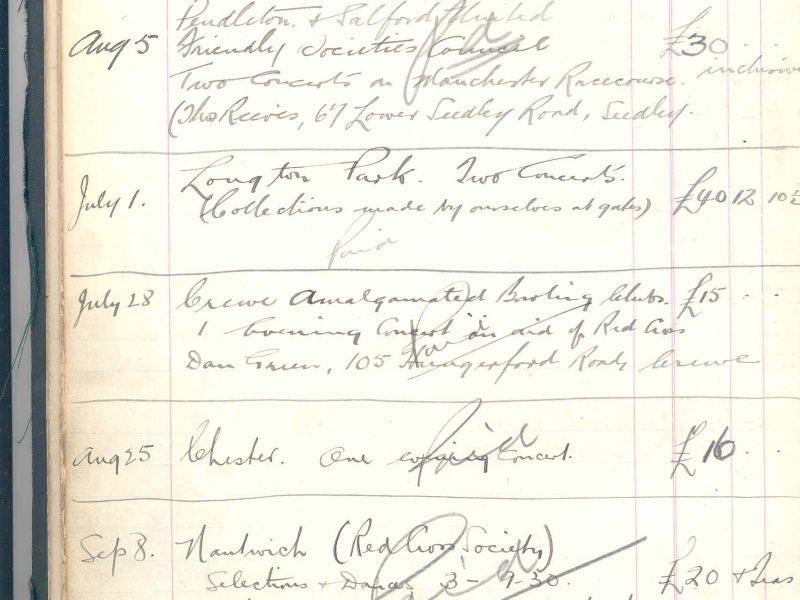 Pendleton & Salford United
Aug 5 Friendly Societies Council £30 . .
Two Concerts on Manchester Racecourse. inclusive
(Thos Reeves, 67 Lower Seedley Road, Seedley.
Longton Park. Two Concerts.
July 1. (Collections made by ourselves at gates) £40 12 10½
Paid
July 28 Crewe Amalgamated Bowling Clubs. £15 . .
1 Evening Concert in aid of Red Cross
Dan Green, 105 Hungerford Road, Crewe
Paid
Aug 25 Chester. One evening Concert. £16 . .
Sep 8. Nantwich (Red Cross Society)
Selections & Dances 3 - 9-30. £20 & Teas